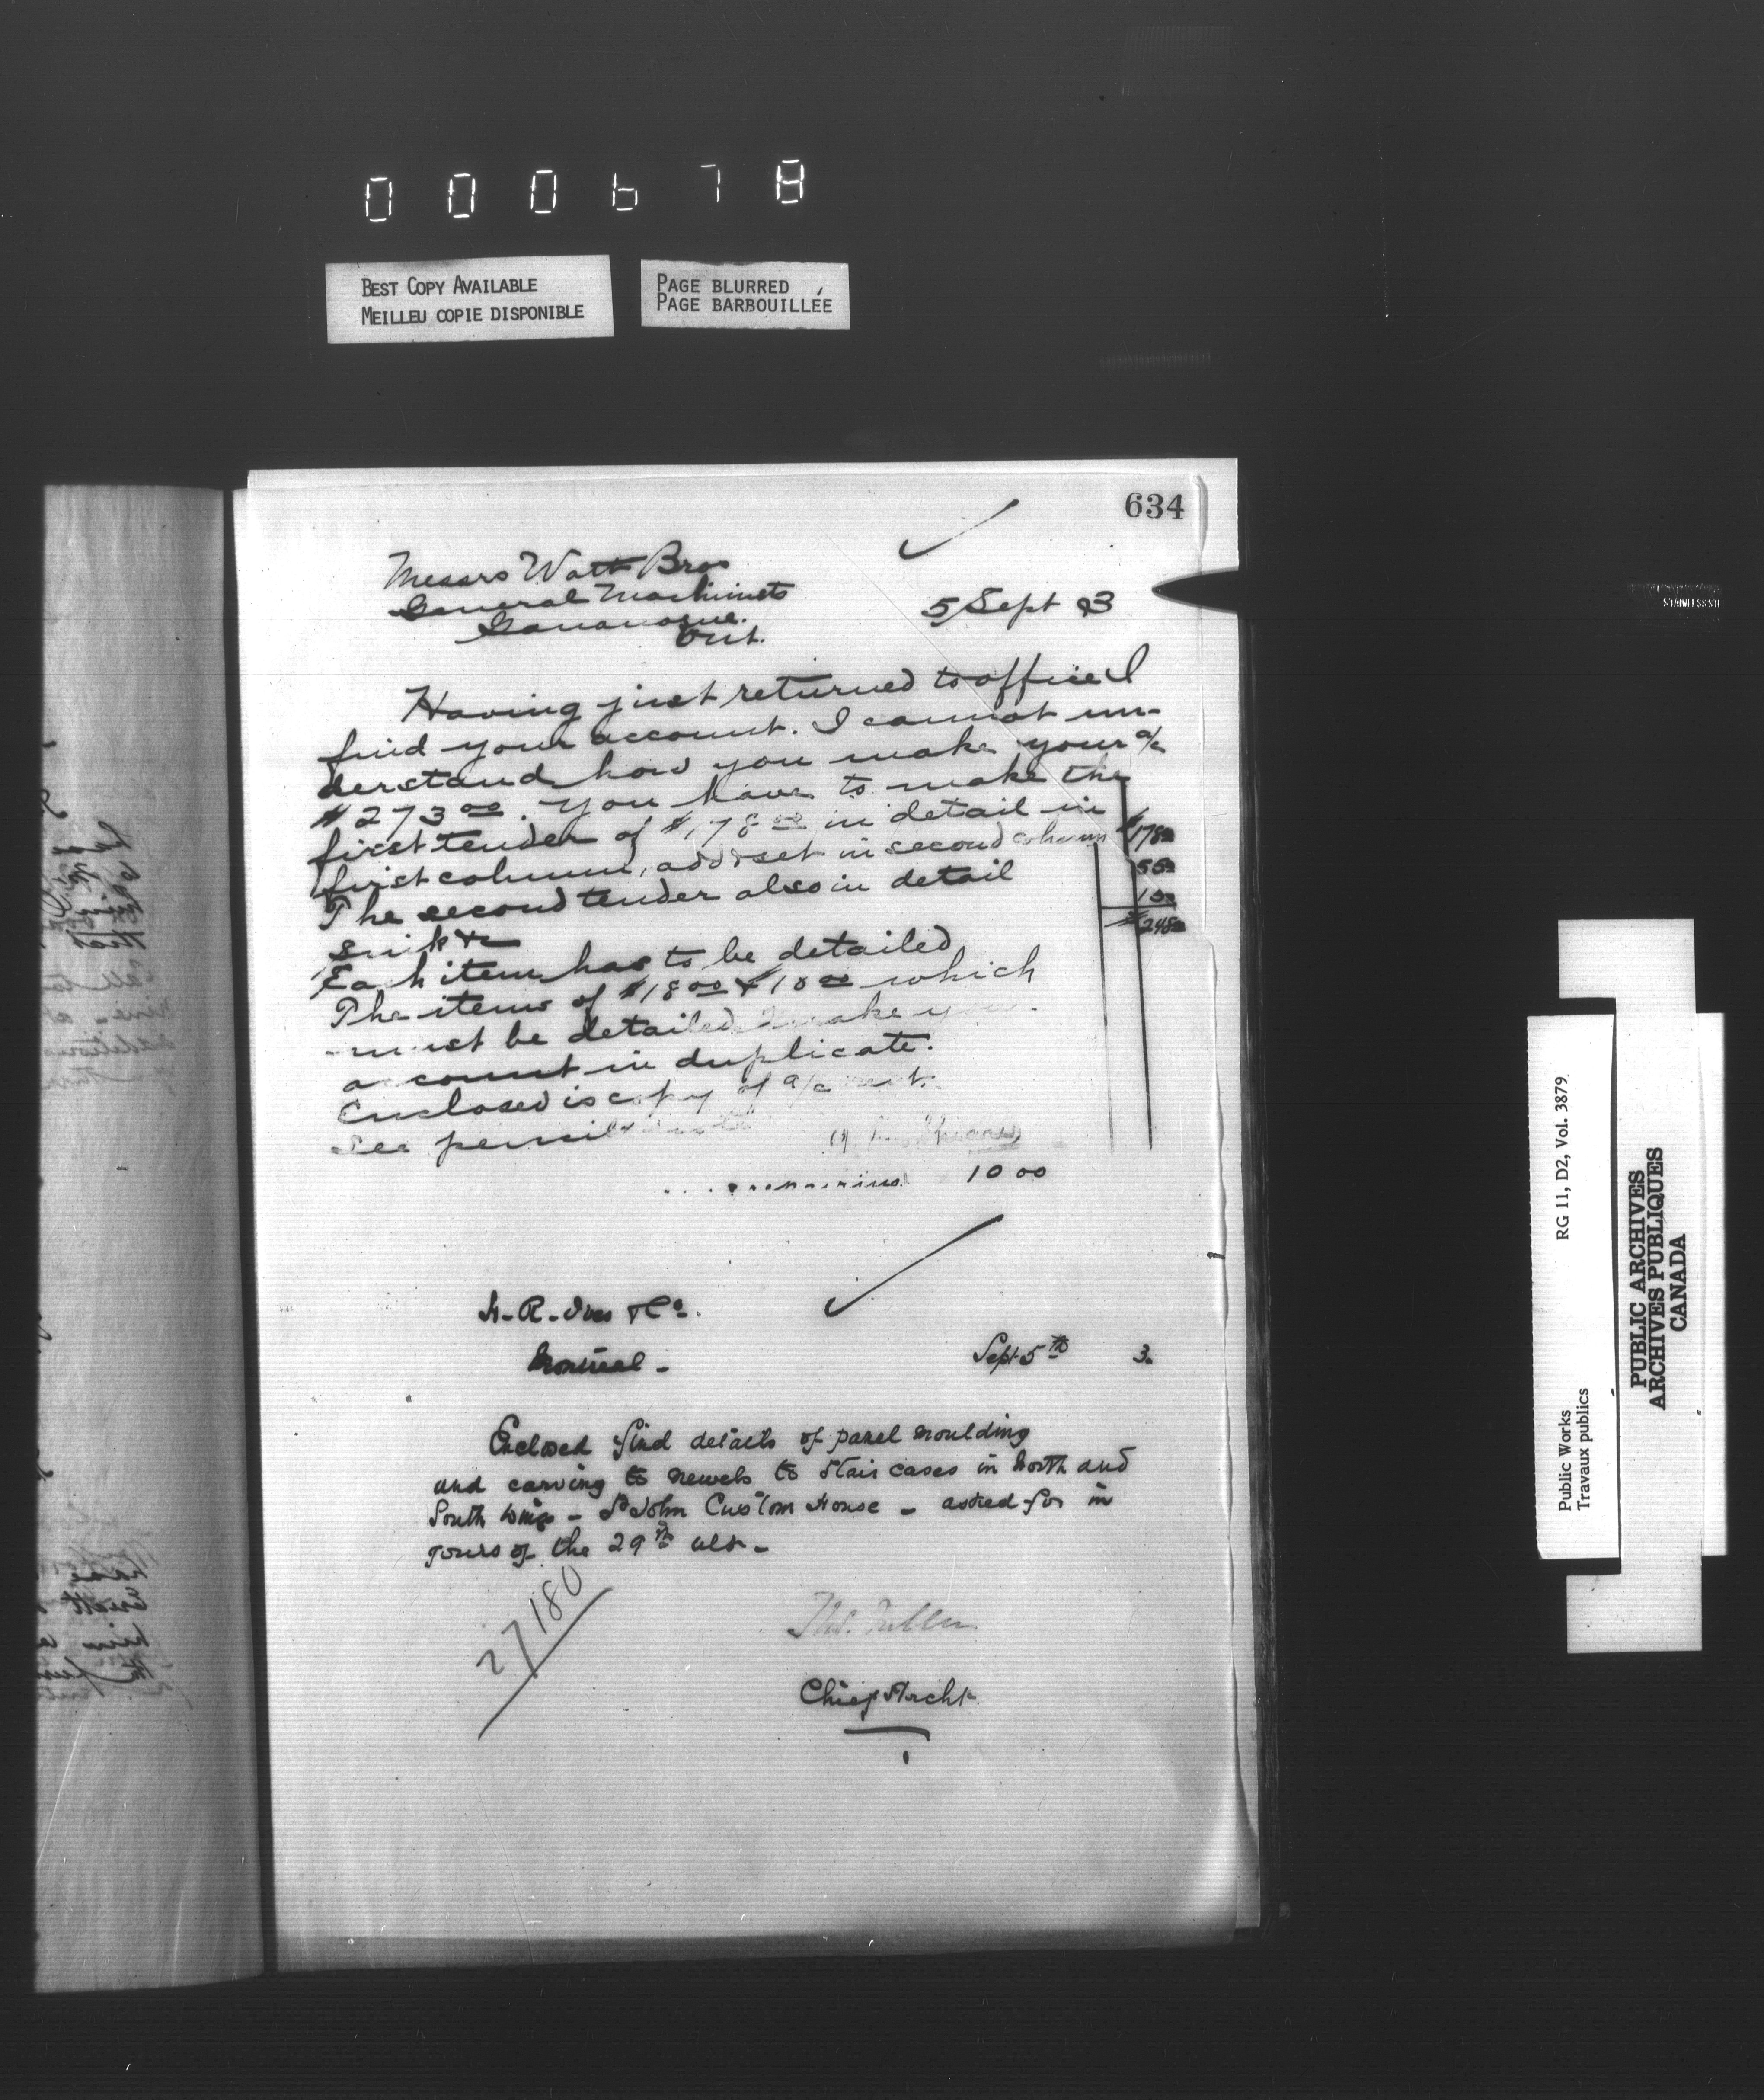 000678
BEST COPY AVAILABLE
MEILLEU COPIE DISPONIBLE
PAGE BLURRED
PAGE BARBOUILLÉE
634
Messrs Watt Bros
General Machinists
Gananoque.
Ont.
5 Sept 93
Having just returned to office I
find your account. I cannot un-
derstand how you make your a/c
$273 00. You have to make the
first tender of $178 00 in detail in
first column, add & set in second column
$178 00
The second tender also in detail
55 00
Each item has to be detailed
The items of $18 00 & $10 00 which
must be detailed make your
account in duplicate.
Enclosed is copy of a/c
See pencil
10 00
H. R. Ives & Co.
Montreal -
Sept 5th 3.
Enclosed find details of panel moulding
and carving to newels to stair cases in North and
South wings - St John Custom House - asked for in
yours of the 29th ult -
27180
Thos. Fuller
Chief Archt
RG 11, D2, Vol. 3879
Public Works
Travaux publics
PUBLIC ARCHIVES
ARCHIVES PUBLIQUES
CANADA